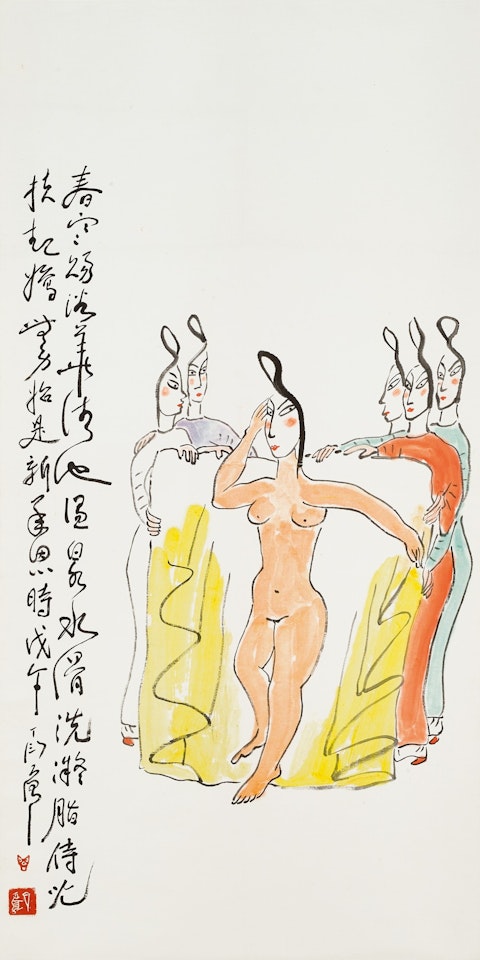 春寒賜浴華清池温泉水滑洗凝脂侍兒
扶起嬌無力始是新承恩時戊午丁衍庸